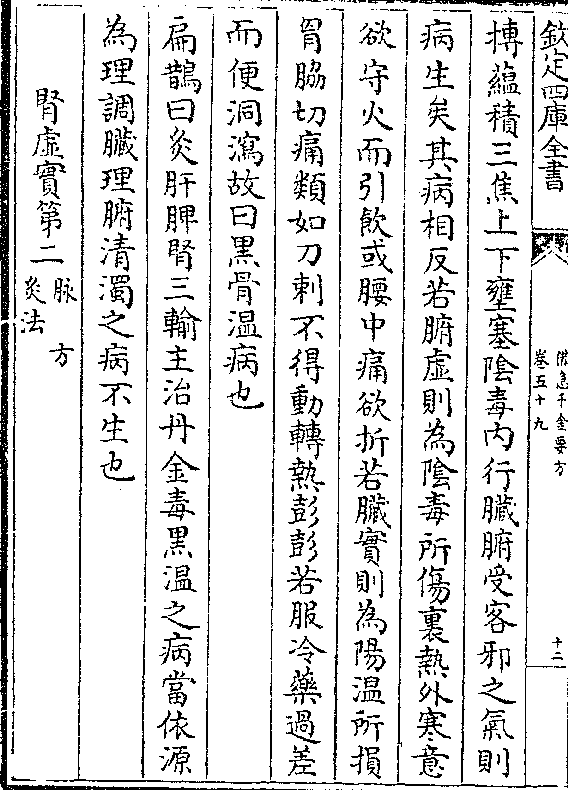 欽定四庫全書
備急千金要方
卷五十九
十二
搏蘊積三焦上下壅塞陰毒内行臟腑受客邪之氣則
病生矣其病相反若腑虛則為陰毒所傷裏熱外寒意
欲守火而引飲或腰中痛欲折若臟實則為陽温所損
胷脇切痛類如刀刺不得動轉熱彭彭若服冷藥過差
而便洞瀉故曰黑骨温病也
扁鵲曰灸肝脾腎三輸主治丹金毒黑温之病當依源
為理調臟理腑清濁之病不生也
腎虛實第二 脉 方
灸法